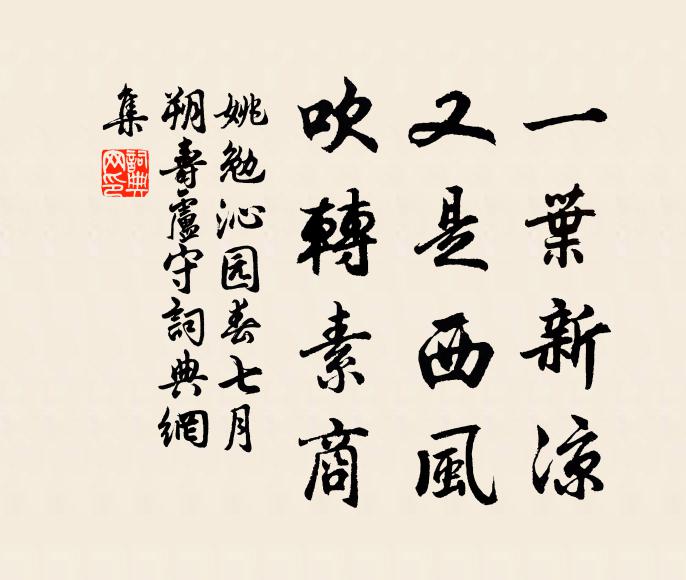 一葉新涼
又是西風
吹轉素商
姚勉沁园春七月
朔壽廬守詞典網
集
詞典
网印